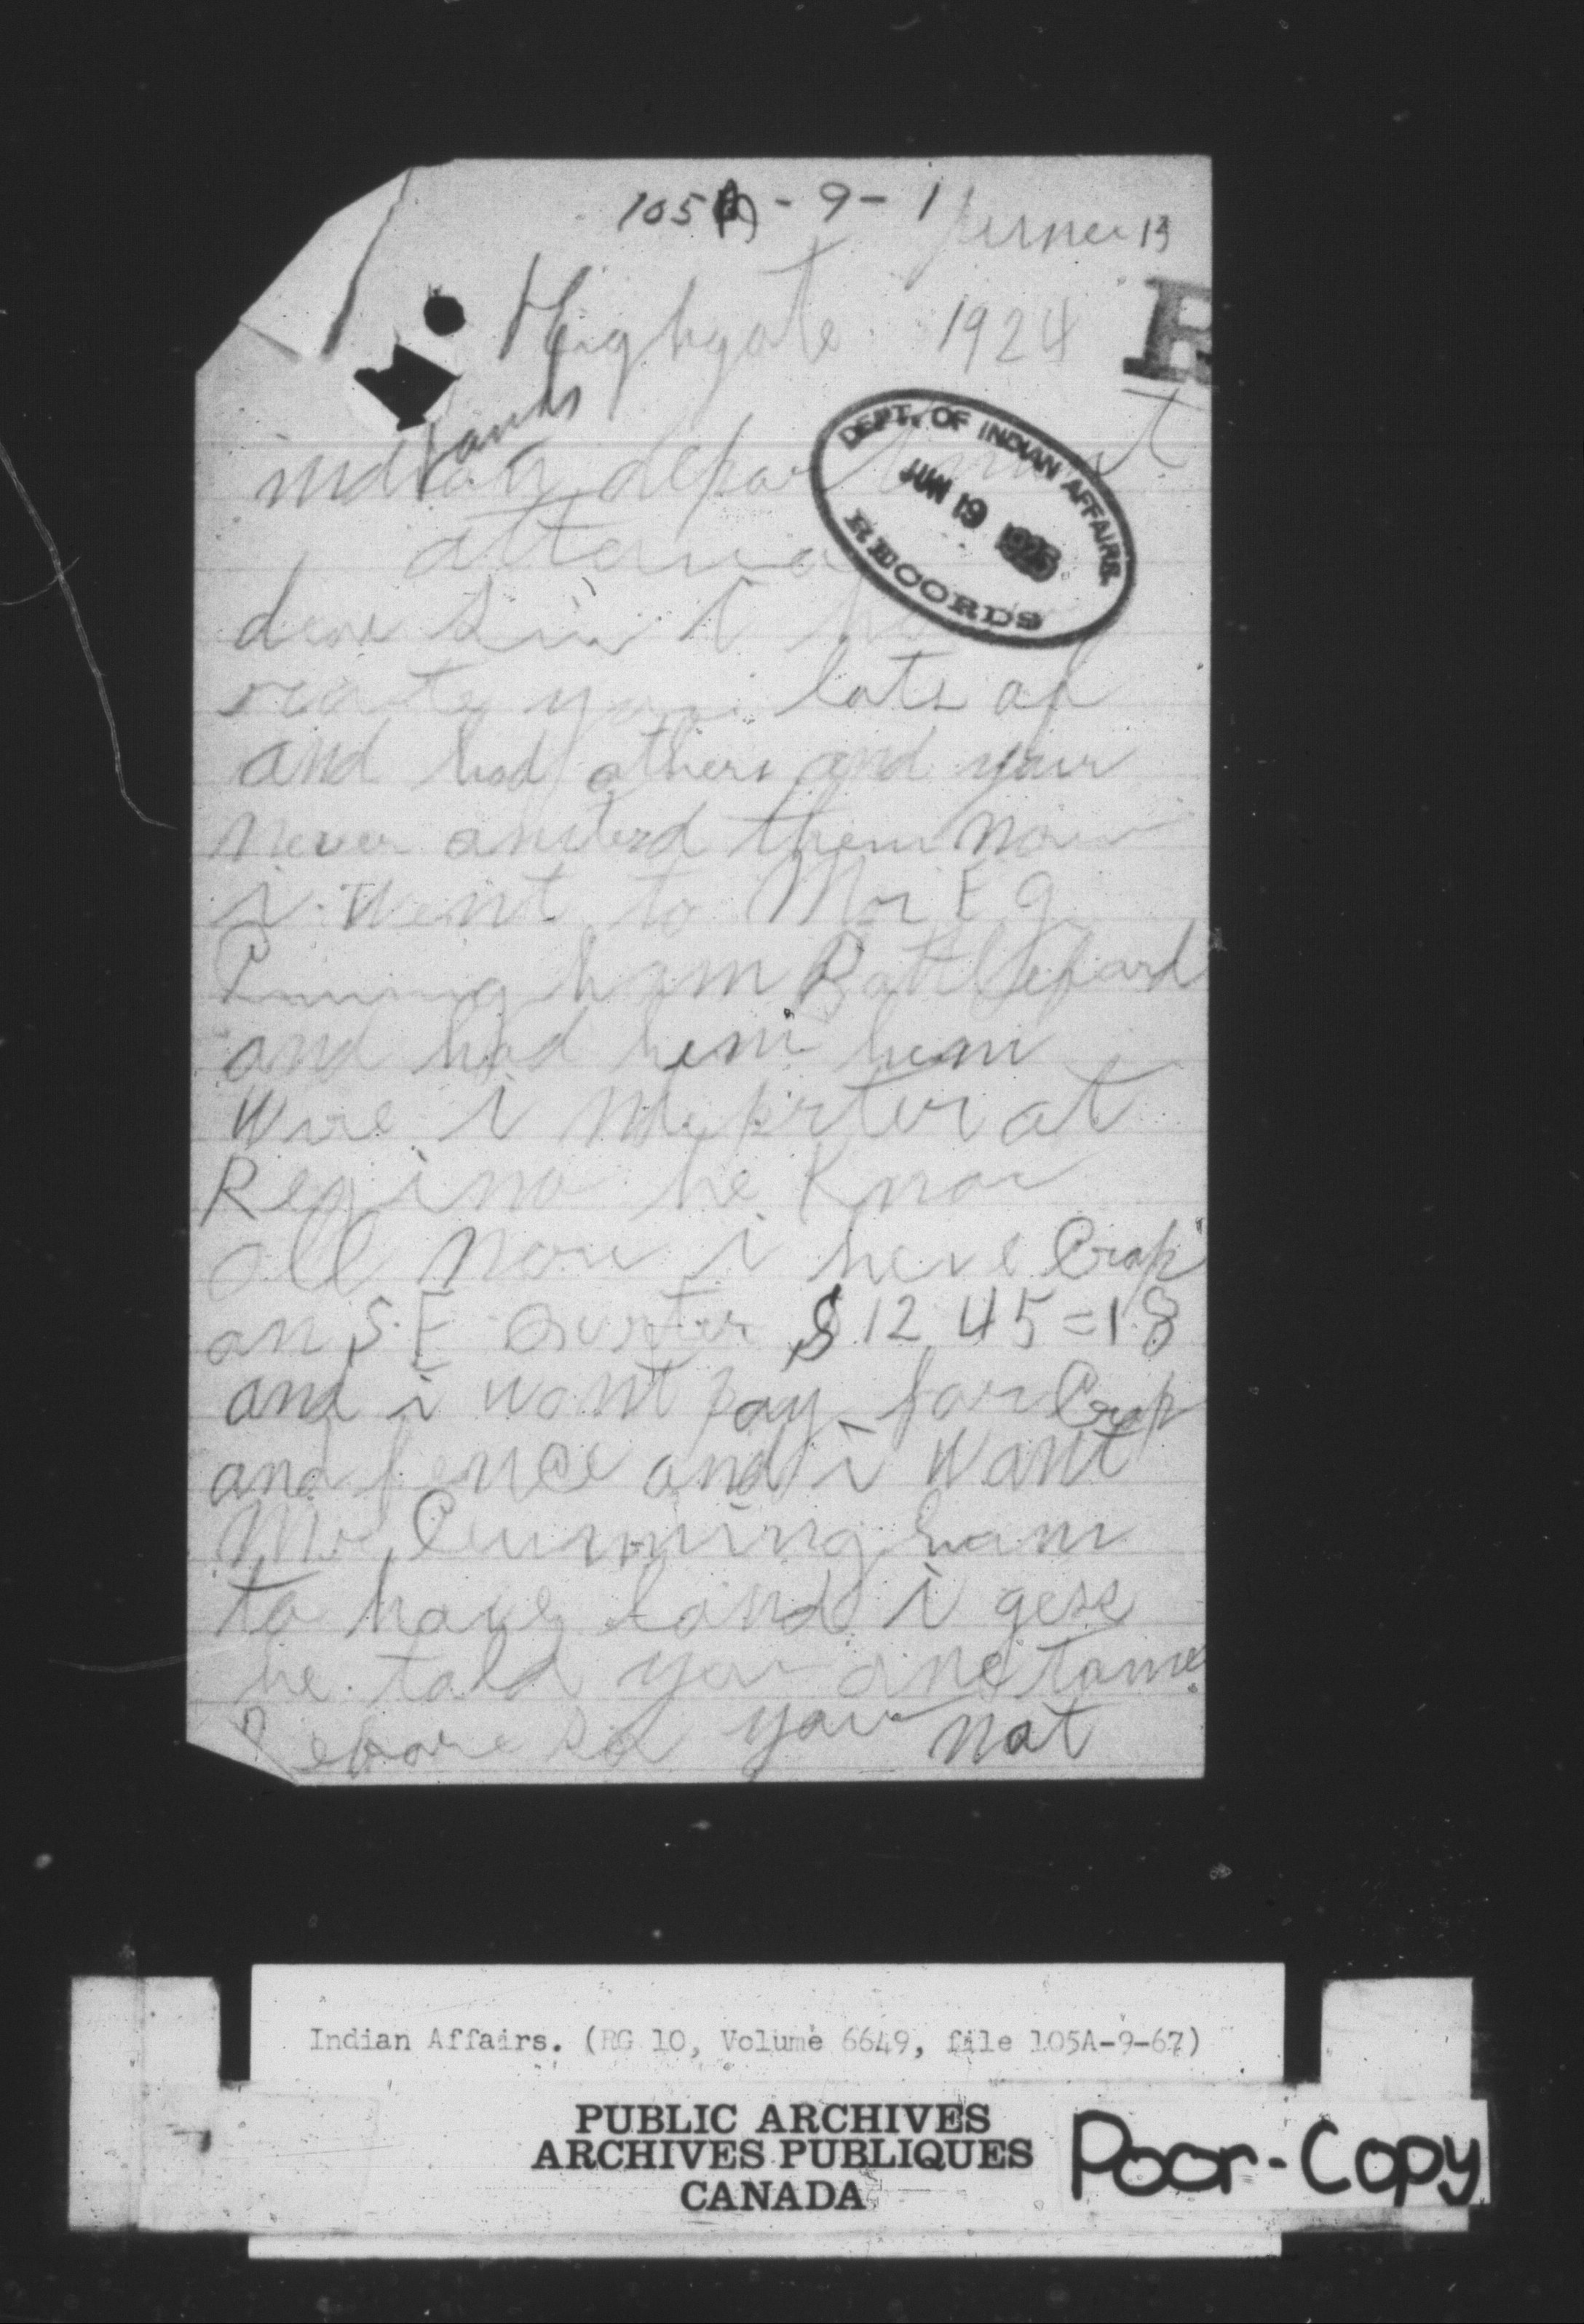 105A-9-1
June 13
Highgate 1924
R
Lands
indian department
DEPT. OF INDIAN AFFAIRS.
JUN 19
RECORDS
attawa
dear Sir i
you lots of
and had others and your
never anserd them now
i went to Mr E G
Cunningham Battleford
and had hem hem
Wire i at
Regina he know
all now i have Crop
on S.E Qurter S 12 45=18
and i want pay for Crop
and fence and i Want
Mr Cunningham
to have land i gese
he told you one tame
before so you not
Indian Affairs. (RG 10, Volume 6649, file 105A-9-67)
PUBLIC ARCHIVES
ARCHIVES PUBLIQUES
CANADA
Poor-Copy